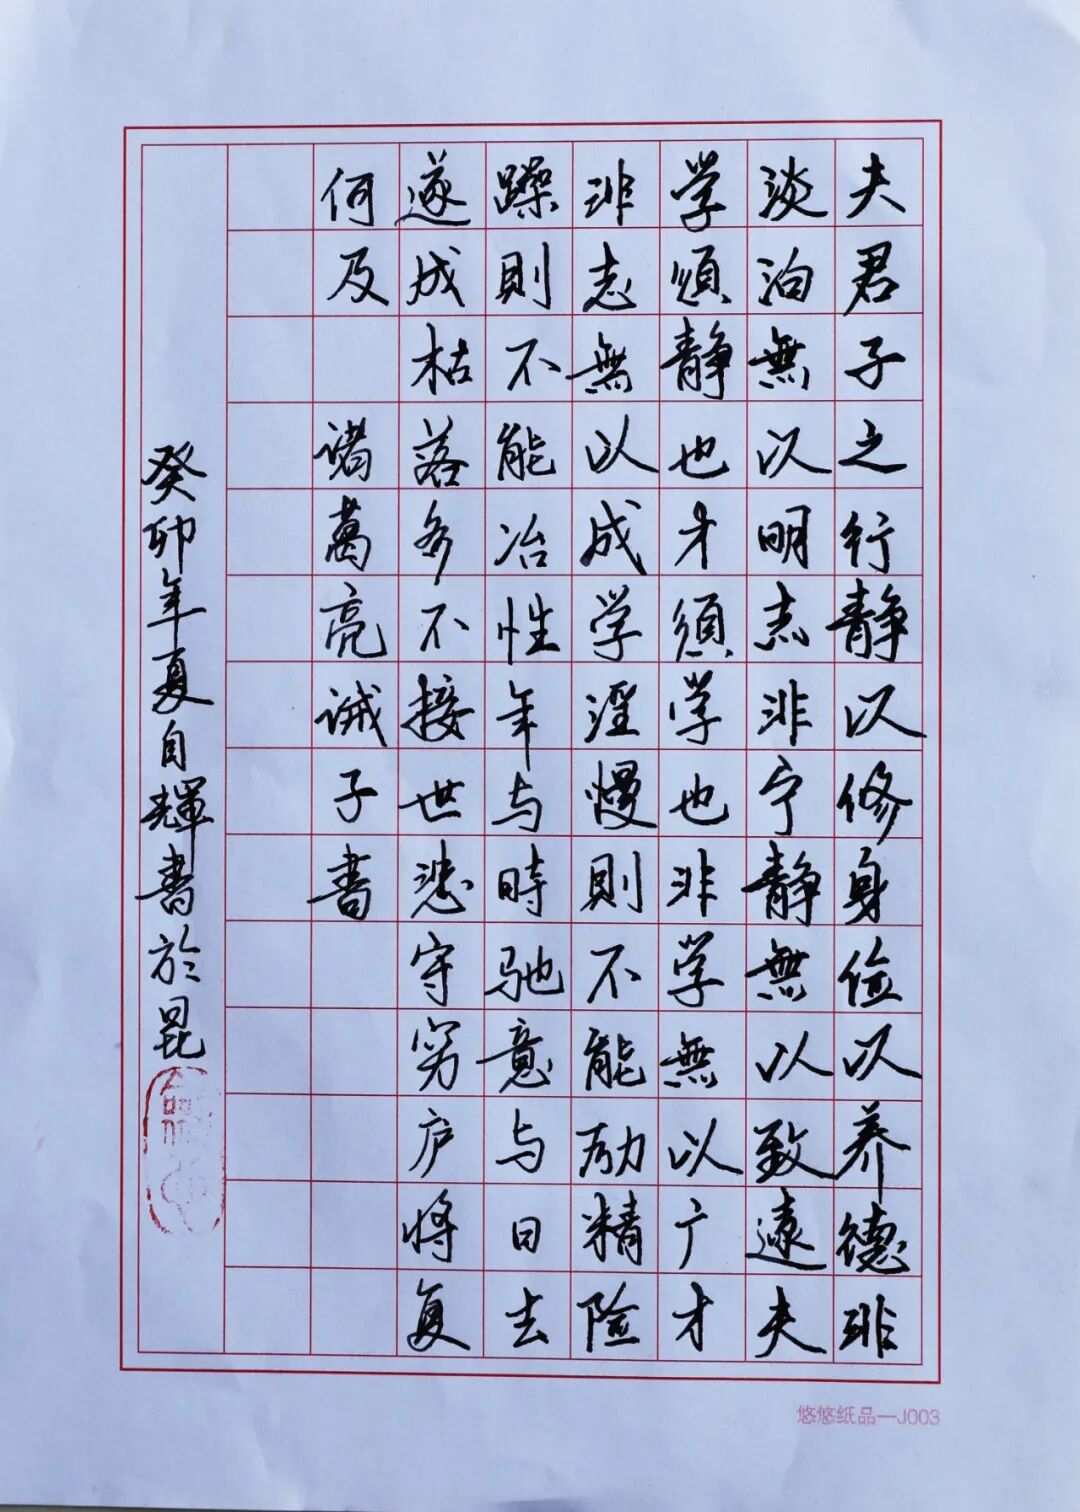 夫君子之行静以修身俭以养德非
淡泊無以明志非宁静無以致遠夫
学須静也才須学也非学無以广才
非志無以成学淫慢則不能励精险
躁則不能冶性年与時驰意与日去
遂成枯落多不接世悲守穷庐将复
何及 諸葛亮诫子書
癸卯年夏自輝書於昆
悠悠纸品—J003